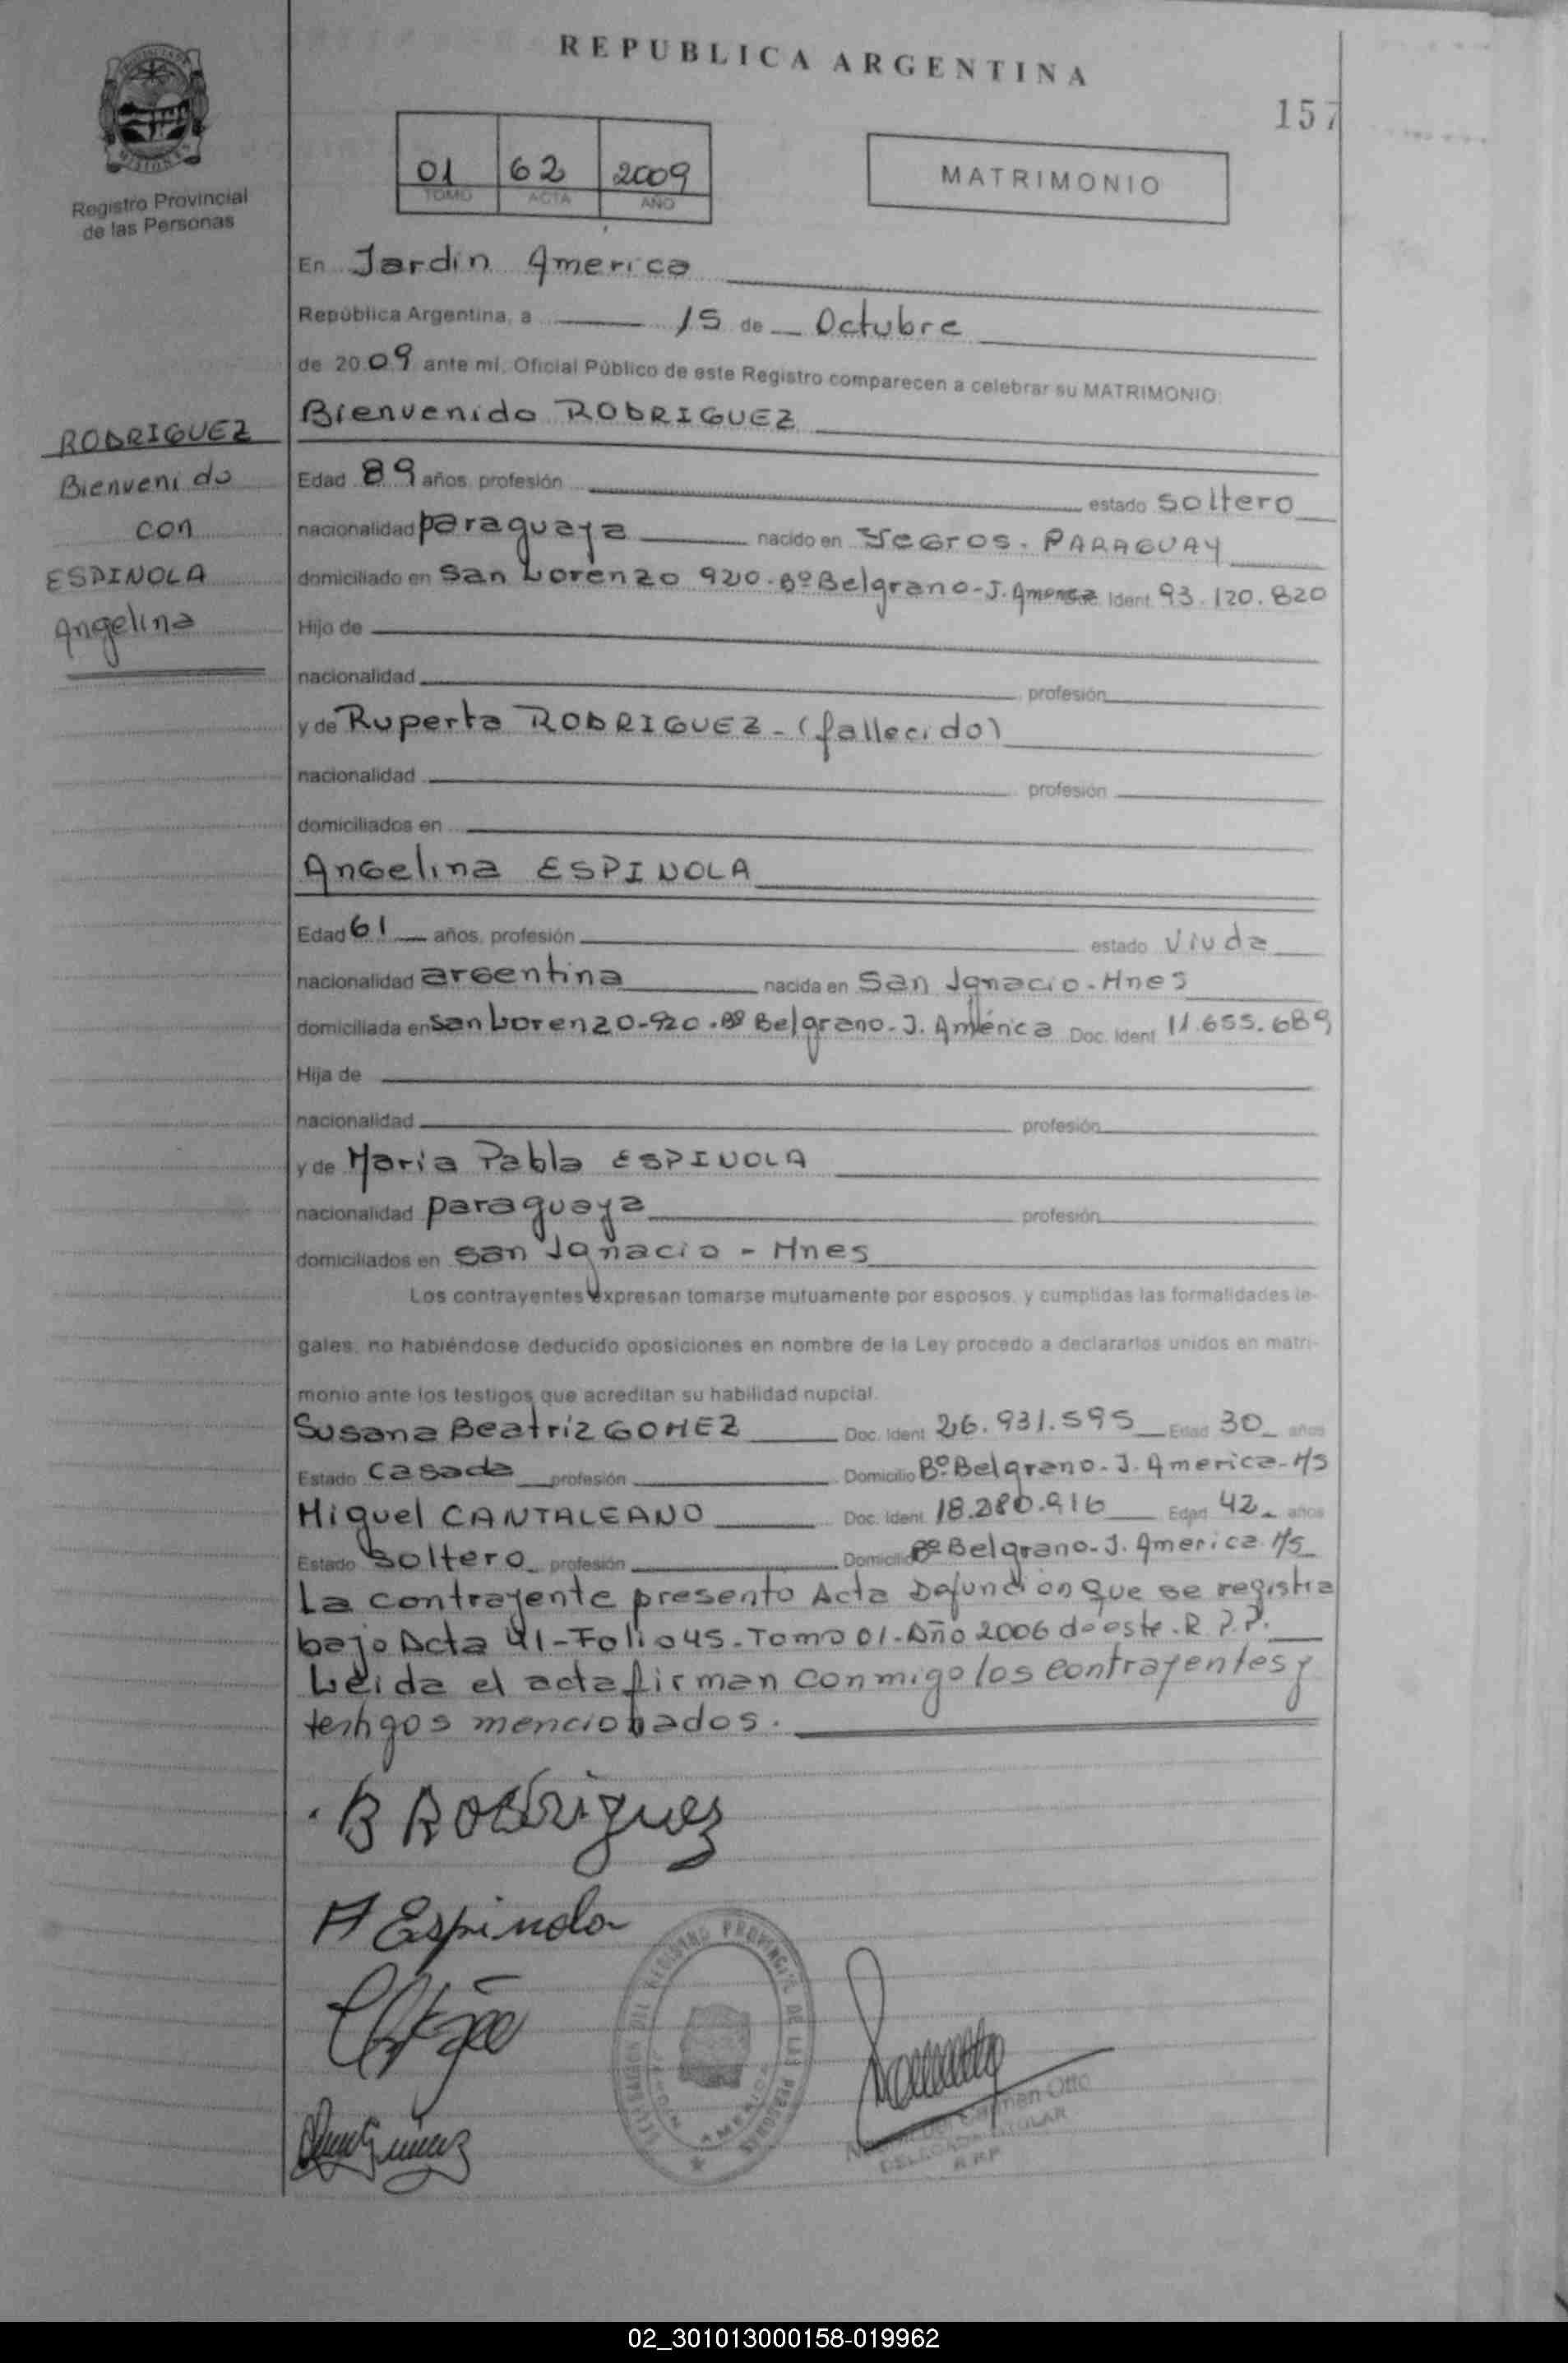 REPUBLICA ARGENTINA
157
MISIONES
Registro Provincial
de las Personas
01 62 2009
TOMO ACTA AÑO
MATRIMONIO
En Jardin America
República Argentina, a 15 de Octubre
de 2009 ante mi, Oficial Público de este Registro comparecen a celebrar su MATRIMONIO:
RODRIGUEZ
Bienvenido
con
ESPINOLA
Angelina
Bienvenido RODRIGUEZ
Edad 89 años, profesión estado soltero
nacionalidad paraguaya nacido en Yegros. PARAGUAY
domiciliado en San Lorenzo 920. Bº Belgrano-J. America Ident. 93.120.820
Hijo de
nacionalidad profesión
y de Ruperta RODRIGUEZ - (fallecido)
nacionalidad profesión
domiciliados en
Angelina ESPINOLA
Edad 61 años, profesión estado Viuda
nacionalidad argentina nacida en San Ignacio - Mnes
domiciliada en San Lorenzo-920. Bº Belgrano. J. América Doc. Ident. 11.655.689
Hija de
nacionalidad profesión
y de Maria Pabla ESPINOLA
nacionalidad paraguaya profesión
domiciliados en San Ignacio - Mnes
Los contrayentes expresan tomarse mutuamente por esposos, y cumplidas las formalidades le-
gales, no habiéndose deducido oposiciones en nombre de la Ley procedo a declararlos unidos en matri-
monio ante los testigos que acreditan su habilidad nupcial.
Susana Beatríz GOMEZ Doc. Ident. 26.931.595 Edad 30 años
Estado Casada profesión Domicilio Bº Belgrano - J. America - M/s
Miguel CANTALEANO Doc. Ident. 18.280.916 Edad 42 años
Estado soltero profesión Domicilio Bº Belgrano - J. America M/s
La contrayente presento Acta Defuncion que se registra
bajo Acta 41-Folio 45-Tomo 01-Año 2006 de este R.P.P.
Leida el acta firman conmigo los contrayentes y
testigos mencionados.
B Rodriguez
A Espinola
DELEGACION DEL REGISTRO PROVINCIAL DE LAS PERSONAS
JARDIN AMERICA
del Carmen Otto
DELEGADA TITULAR
R.P.P.
02_301013000158-019962